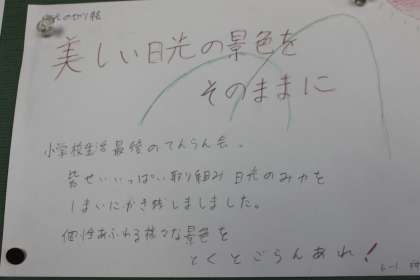 光の切り絵
美しい日光の景色を
そのままに
小学校生活最後のてんらん会。
皆せいいっぱい取り組み日光のみかを
しまいにかき
しました。
個性あふれる様々な景色を
とくとごらんあれ!
6-1